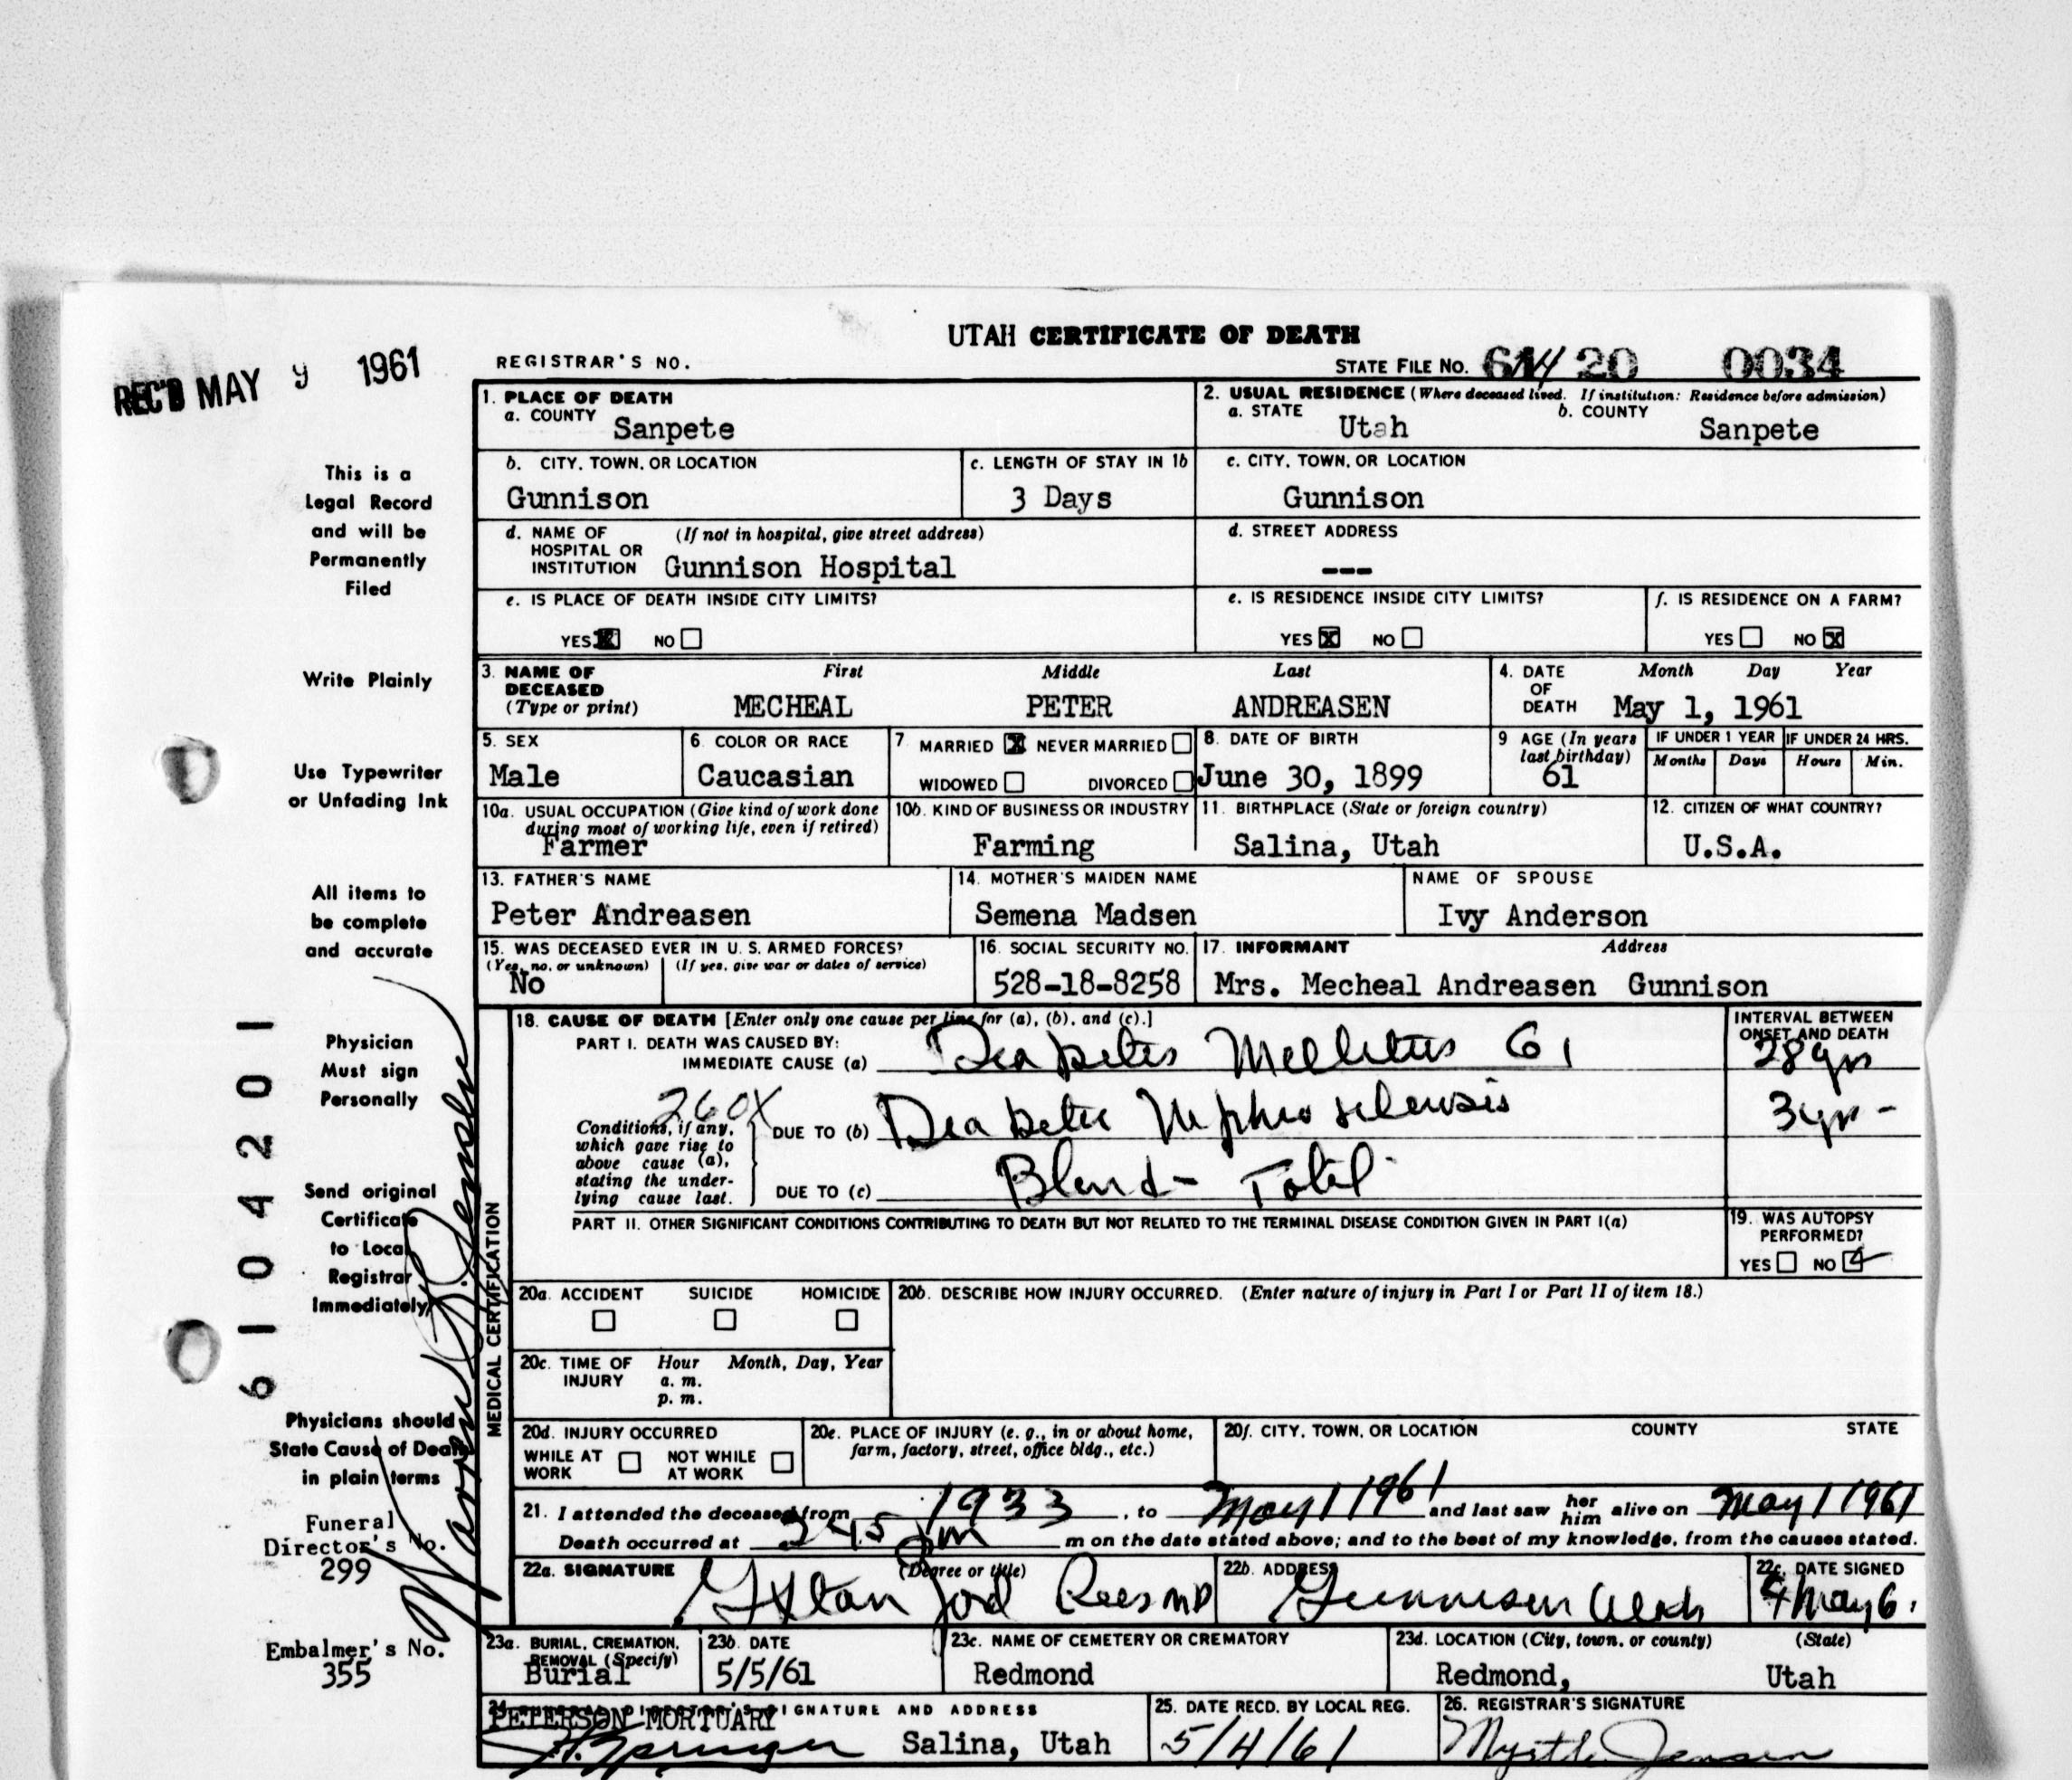 UTAH CERTIFICATE OF DEATH
REC'D MAY 9 1961
REGISTRAR'S NO.
STATE FILE NO. 61 14 20 0034
1. PLACE OF DEATH
a. COUNTY Sanpete
2. USUAL RESIDENCE (Where deceased lived. If institution: Residence before admission)
a. STATE Utah b. COUNTY Sanpete
b. CITY, TOWN, OR LOCATION Gunnison
c. LENGTH OF STAY IN 1b 3 Days
c. CITY, TOWN, OR LOCATION Gunnison
d. NAME OF HOSPITAL OR INSTITUTION (If not in hospital, give street address) Gunnison Hospital
d. STREET ADDRESS ---
e. IS PLACE OF DEATH INSIDE CITY LIMITS?
YES X NO
e. IS RESIDENCE INSIDE CITY LIMITS?
YES X NO
f. IS RESIDENCE ON A FARM?
YES NO X
3. NAME OF DECEASED (Type or print)
First Middle Last
MECHEAL PETER ANDREASEN
4. DATE OF DEATH Month Day Year
May 1, 1961
5. SEX Male
6. COLOR OR RACE Caucasian
7 MARRIED X NEVER MARRIED
WIDOWED DIVORCED
8. DATE OF BIRTH June 30, 1899
9 AGE (In years last birthday) 61
IF UNDER 1 YEAR Months Days
IF UNDER 24 HRS. Hours Min.
10a. USUAL OCCUPATION (Give kind of work done during most of working life, even if retired) Farmer
10b. KIND OF BUSINESS OR INDUSTRY Farming
11. BIRTHPLACE (State or foreign country) Salina, Utah
12. CITIZEN OF WHAT COUNTRY? U.S.A.
13. FATHER'S NAME Peter Andreasen
14. MOTHER'S MAIDEN NAME Semena Madsen
NAME OF SPOUSE Ivy Anderson
15. WAS DECEASED EVER IN U. S. ARMED FORCES?
(Yes, no, or unknown) (If yes, give war or dates of service)
No
16. SOCIAL SECURITY NO. 528-18-8258
17. INFORMANT Address
Mrs. Mecheal Andreasen Gunnison
MEDICAL CERTIFICATION
18. CAUSE OF DEATH [Enter only one cause per line for (a), (b), and (c).]
PART I. DEATH WAS CAUSED BY:
IMMEDIATE CAUSE (a) Diabetes Mellitus 61
INTERVAL BETWEEN ONSET AND DEATH
28 yrs
260X
Conditions, if any, which gave rise to above cause (a), stating the underlying cause last.
DUE TO (b) Diabetic Nephrosclerosis
3 yrs -
DUE TO (c) Blind - Total
PART II. OTHER SIGNIFICANT CONDITIONS CONTRIBUTING TO DEATH BUT NOT RELATED TO THE TERMINAL DISEASE CONDITION GIVEN IN PART I(a)
19. WAS AUTOPSY PERFORMED?
YES NO
20a. ACCIDENT SUICIDE HOMICIDE
20b. DESCRIBE HOW INJURY OCCURRED. (Enter nature of injury in Part I or Part II of item 18.)
20c. TIME OF INJURY Hour Month, Day, Year
a. m.
p. m.
20d. INJURY OCCURRED
WHILE AT WORK NOT WHILE AT WORK
20e. PLACE OF INJURY (e. g., in or about home, farm, factory, street, office bldg., etc.)
20f. CITY, TOWN, OR LOCATION COUNTY STATE
21. I attended the deceased from 1933, to May 1 1961 and last saw her him alive on May 1 1961
Death occurred at 245 pm m on the date stated above; and to the best of my knowledge, from the causes stated.
22a. SIGNATURE (Degree or title)
Rees MD
22b. ADDRESS Gunnison Utah
22c. DATE SIGNED
4 May 61
23a. BURIAL, CREMATION, REMOVAL (Specify) Burial
23b. DATE 5/5/61
23c. NAME OF CEMETERY OR CREMATORY Redmond
23d. LOCATION (City, town, or county) (State)
Redmond, Utah
24. FUNERAL DIRECTOR'S SIGNATURE AND ADDRESS
PETERSON MORTUARY
Salina, Utah
25. DATE RECD. BY LOCAL REG.
5/4/61
26. REGISTRAR'S SIGNATURE
Myrtle Jensen
This is a
Legal Record
and will be
Permanently
Filed
Write Plainly
Use Typewriter
or Unfading Ink
All items to
be complete
and accurate
Physician
Must sign
Personally
Send original
Certificate
to Local
Registrar
Immediately
Physicians should
State Cause of Death
in plain terms
Funeral
Director's No.
299
Embalmer's No.
355
6104201